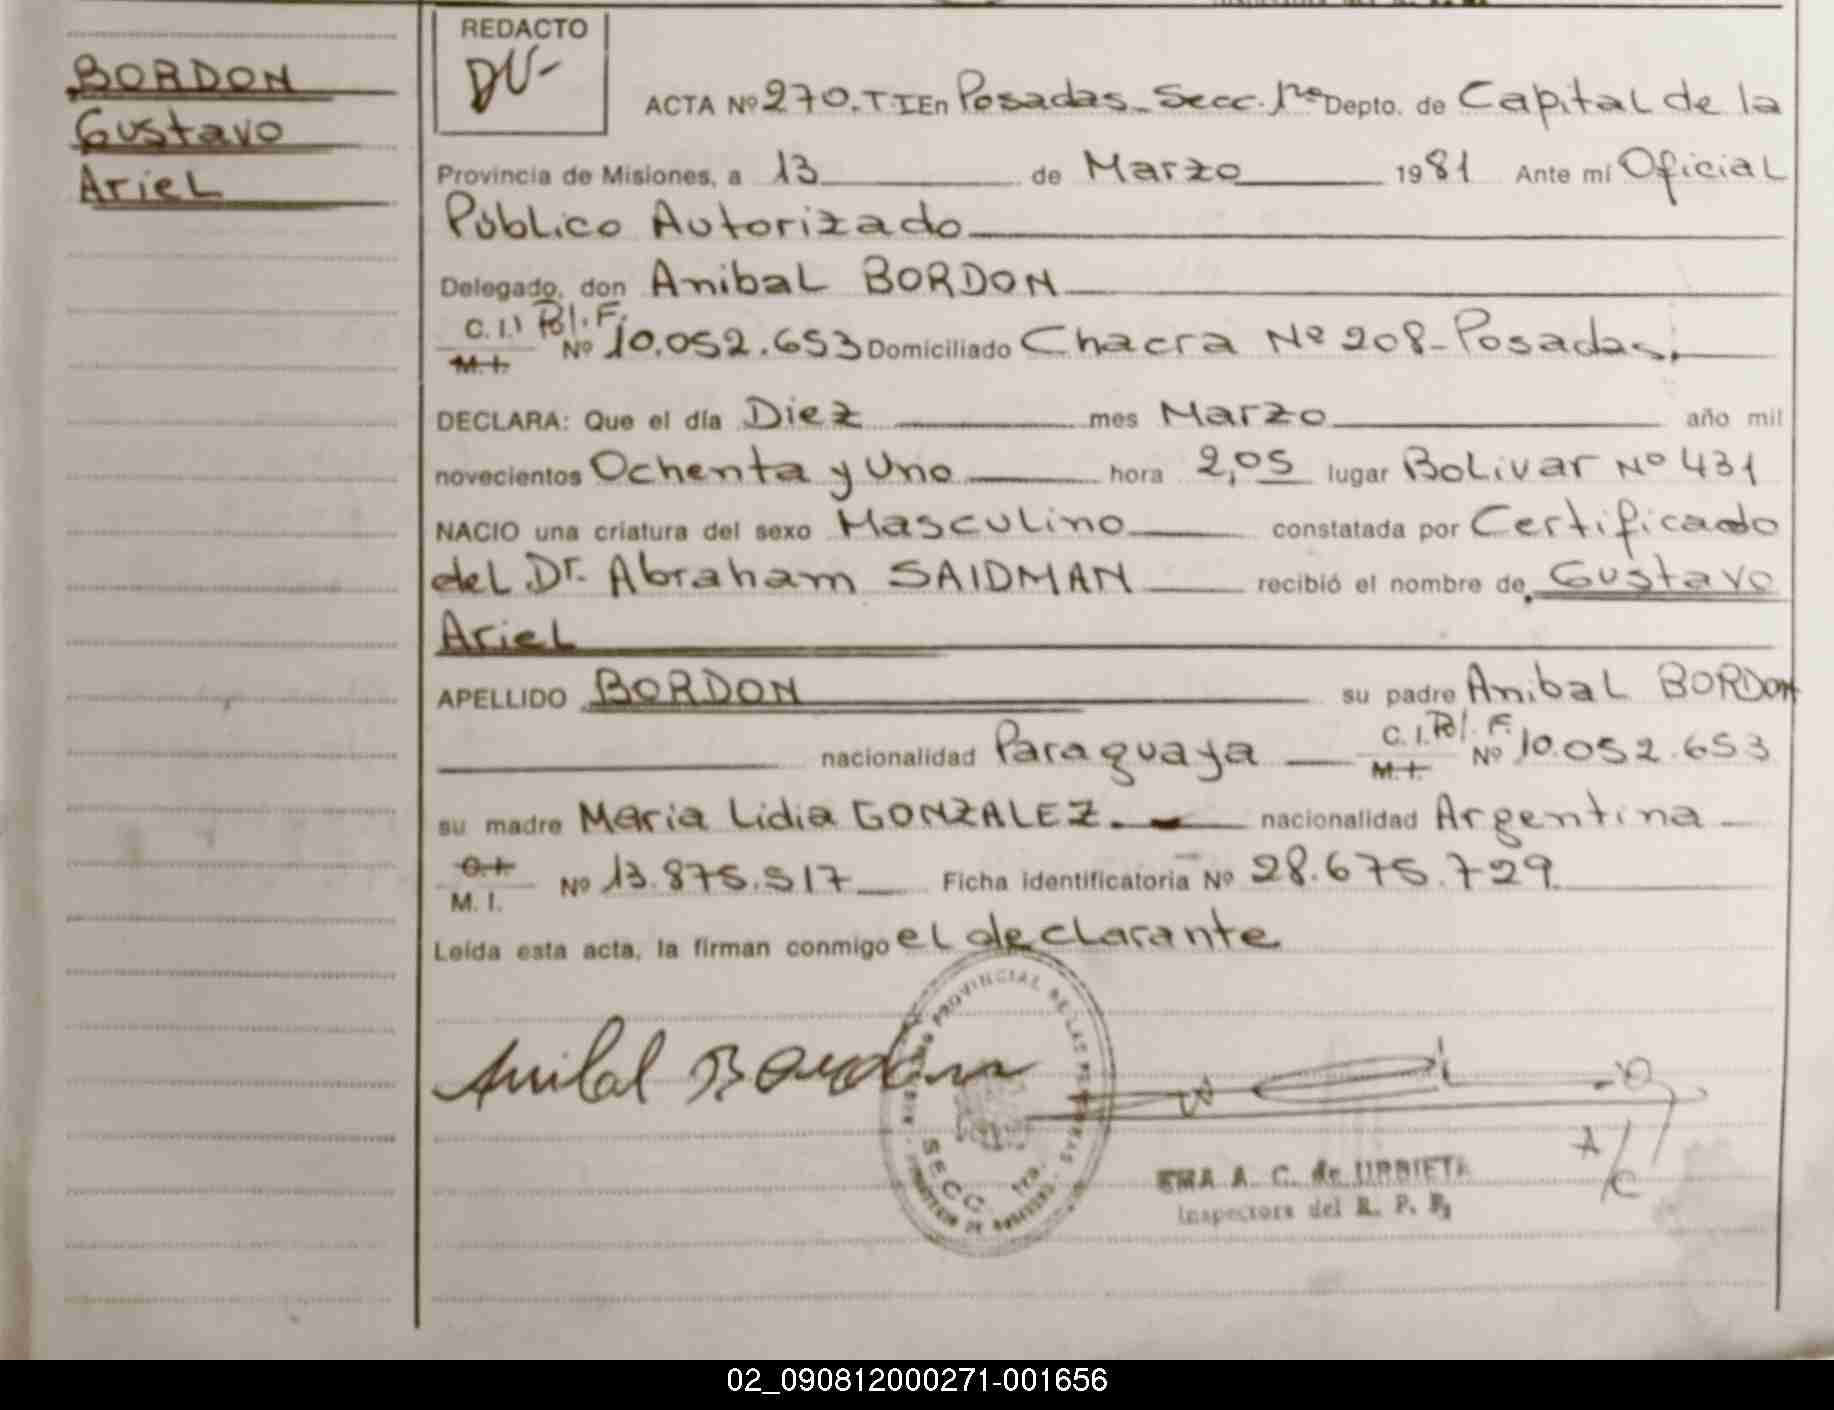 BORDON
Gustavo
Ariel
REDACTO
ACTA Nº 270. T.I En Posadas - Secc. 1ra Depto. de Capital de la
Provincia de Misiones, a 13 de Marzo 1981 Ante mí Oficial
Público Autorizado
Delegado, don Anibal BORDON
C.I. Pol. F.
M.I. Nº 10.052.653 Domiciliado Chacra Nº 208 - Posadas.
DECLARA: Que el día Diez mes Marzo año mil
novecientos Ochenta y Uno hora 2,05 lugar Bolivar Nº 431
NACIO una criatura del sexo Masculino constatada por Certificado
del Dr. Abraham SAIDMAN recibió el nombre de Gustavo
Ariel
APELLIDO BORDON su padre Anibal BORDON
nacionalidad Paraguaya C.I. Pol. F. M.I. Nº 10.052.653
su madre Maria Lidia GONZALEZ. nacionalidad Argentina
C.I. M.I. Nº 13.875.517 Ficha identificatoria Nº 28.675.729
Leída esta acta, la firman conmigo el declarante
Anibal Bordon
PROVINCIAL DE LAS PERSONAS
SECC. 1ra.
EMA A. C. de URBIETA
Inspectora del R. P. P.
A/C
02_090812000271-001656